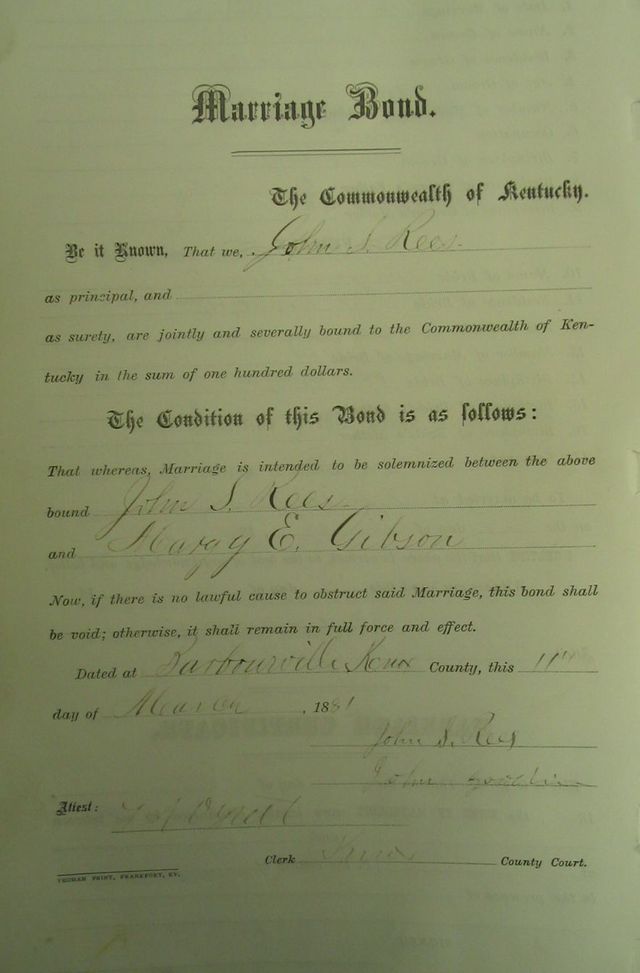 Marriage Bond.
The Commonwealth of Kentucky.
Be it Known, That we, John S. Rees
as principal, and
as surety, are jointly and severally bound to the Commonwealth of Ken-
tucky in the sum of one hundred dollars.
The Condition of this Bond is as follows:
That whereas, Marriage is intended to be solemnized between the above
bound John S. Rees
and Margy E. Gibson
Now, if there is no lawful cause to obstruct said Marriage, this bond shall
be void; otherwise, it shall remain in full force and effect.
Dated at Barbourville Knox County, this 11
day of March, 1881
John S. Rees
John
Attest:
Clerk Knox County Court.
YEOMAN PRINT, FRANKFORT, KY.